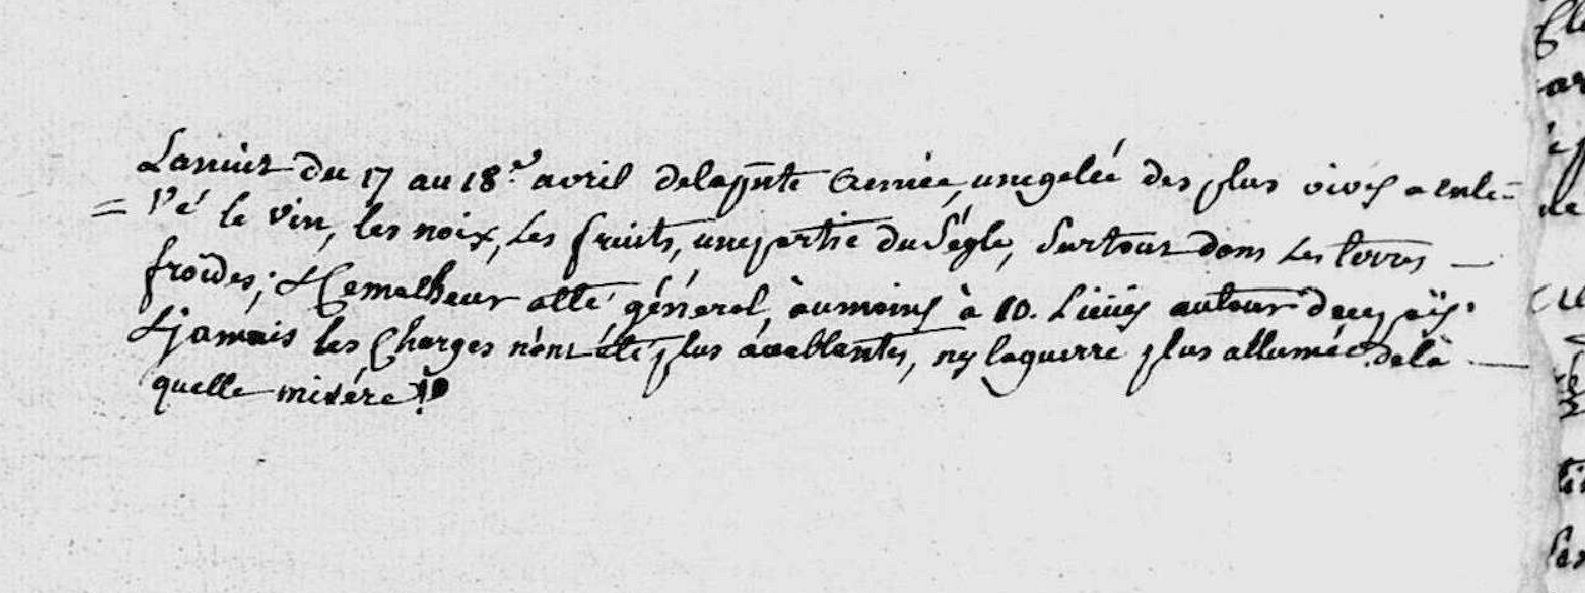 La nuit du 17 au 18.e avril de la pnte année, une gelée des plus vives a enle=
=vé le vin, les noix, les fruits, une partie du ségle, surtout dans les terres
froides; & le malheur a été général, au moins à 10. liëües autour du païs.
& jamais les charges n'ont été plus accablantes, ny la guerre plus allumée. de là
quelle misére!!